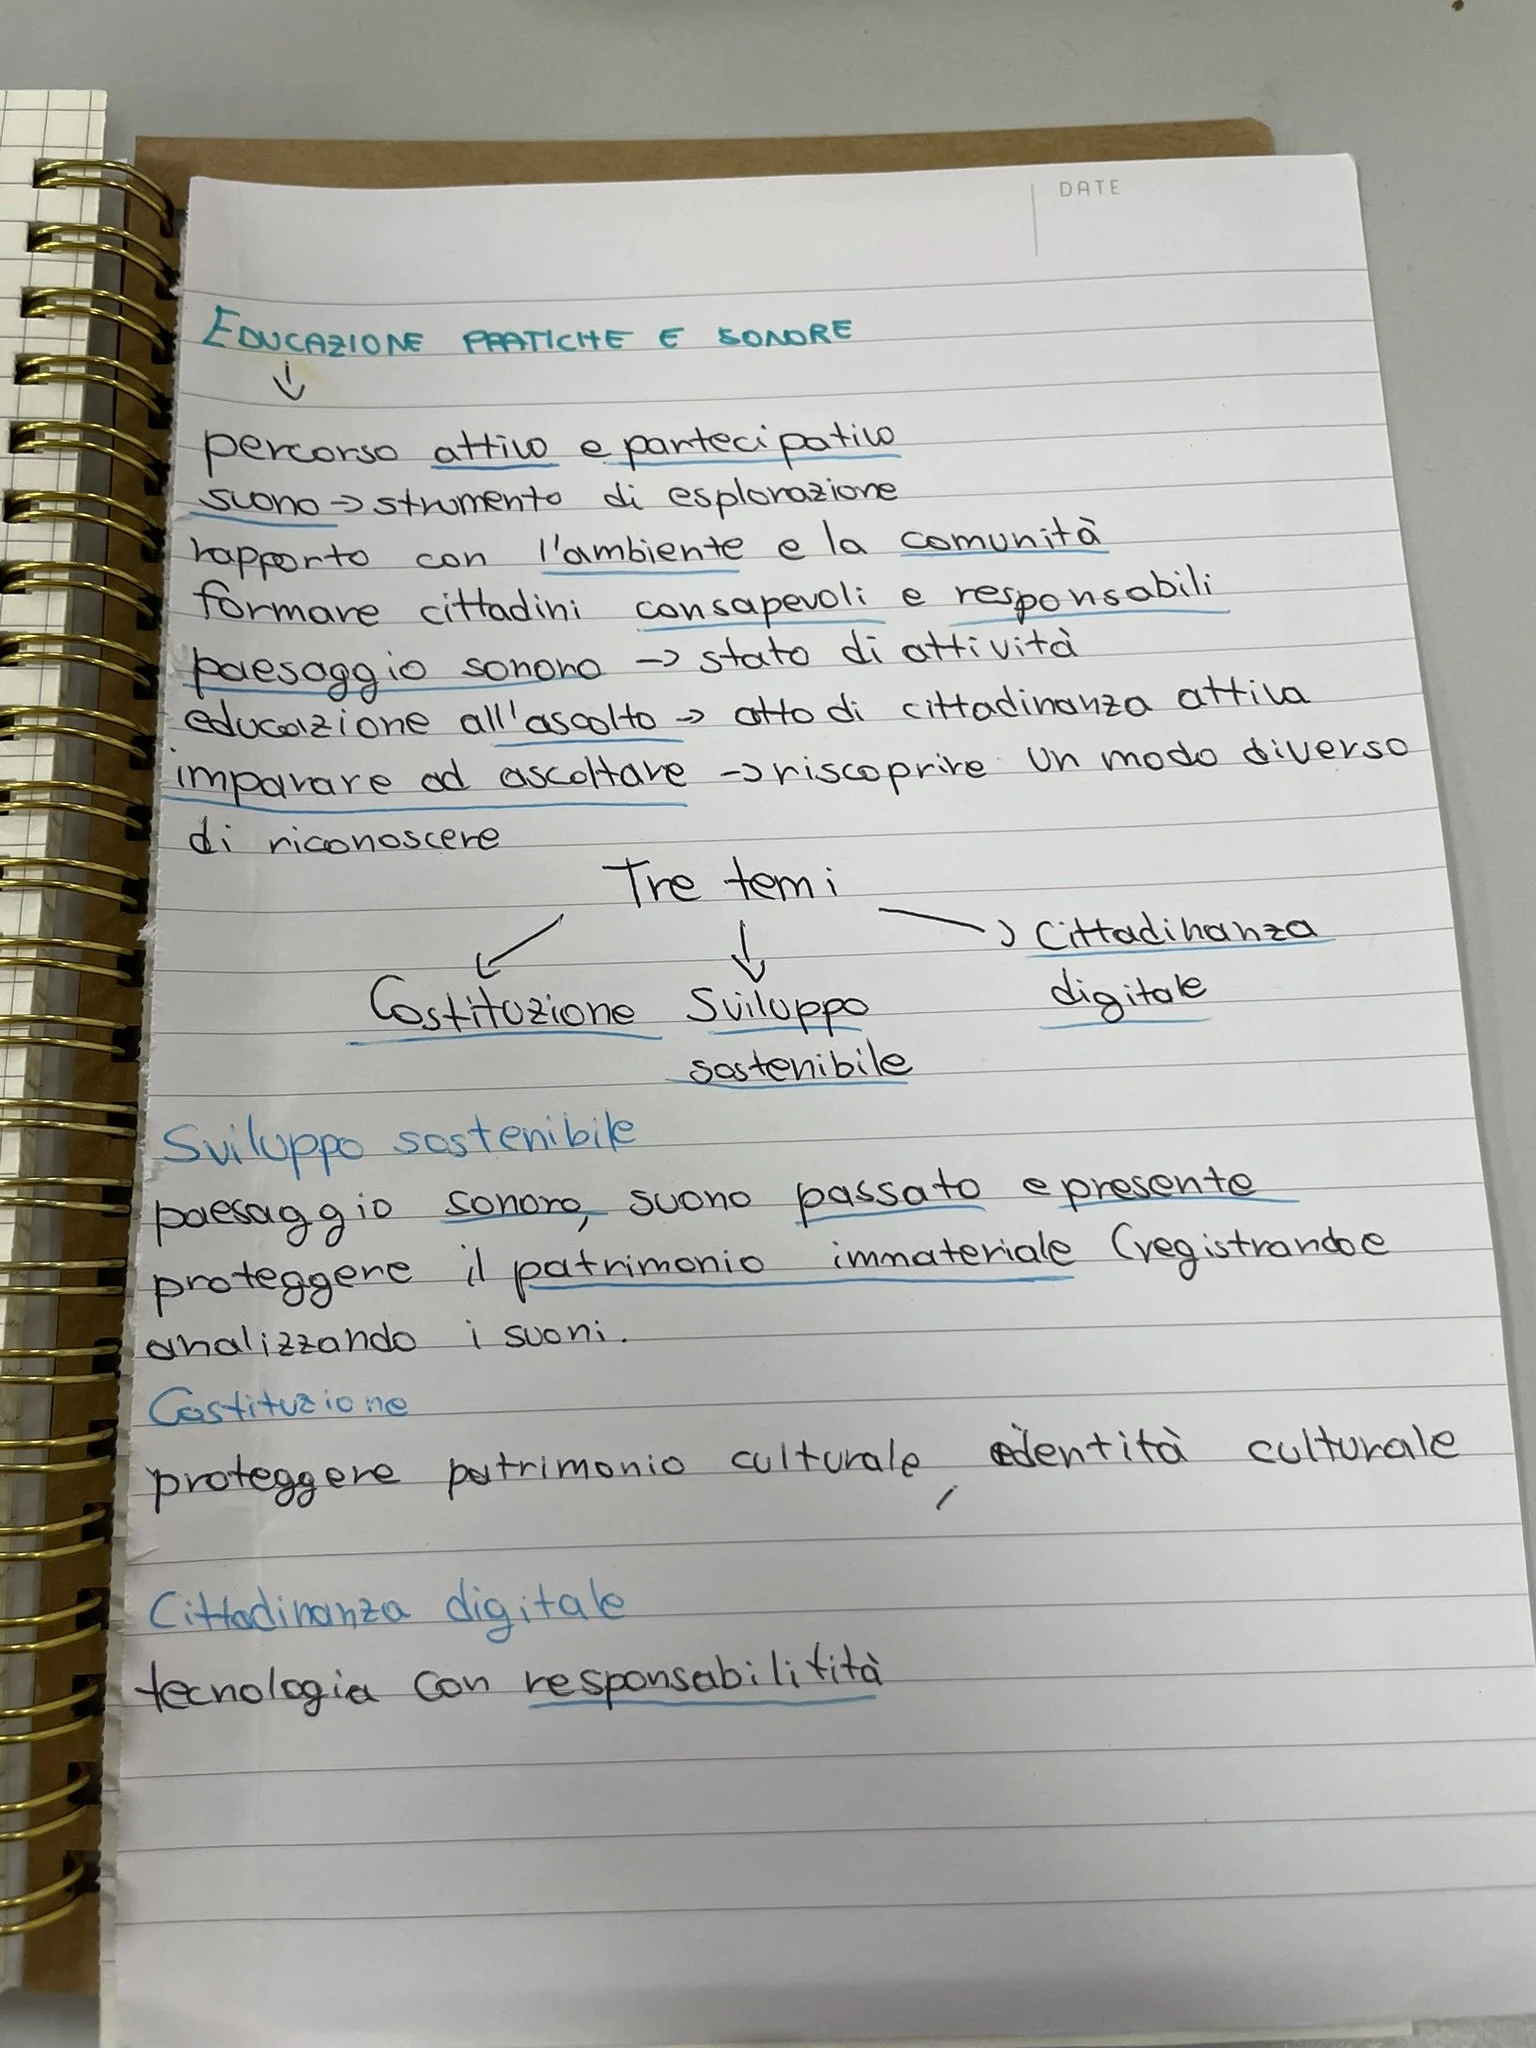 DATE
EDUCAZIONE PRATICHE E SONORE
↓
percorso attivo e partecipativo
suono → strumento di esplorazione
rapporto con l'ambiente e la comunità
formare cittadini consapevoli e responsabili
paesaggio sonoro → stato di attività
educazione all'ascolto → atto di cittadinanza attiva
imparare ad ascoltare → riscoprire un modo diverso
di riconoscere
Tre temi
Costituzione Sviluppo sostenibile Cittadinanza digitale
Sviluppo sostenibile
paesaggio sonoro, suono passato e presente
proteggere il patrimonio immateriale (registrando e
analizzando i suoni.
Costituzione
proteggere patrimonio culturale, identità culturale
Cittadinanza digitale
tecnologia con responsabilitità